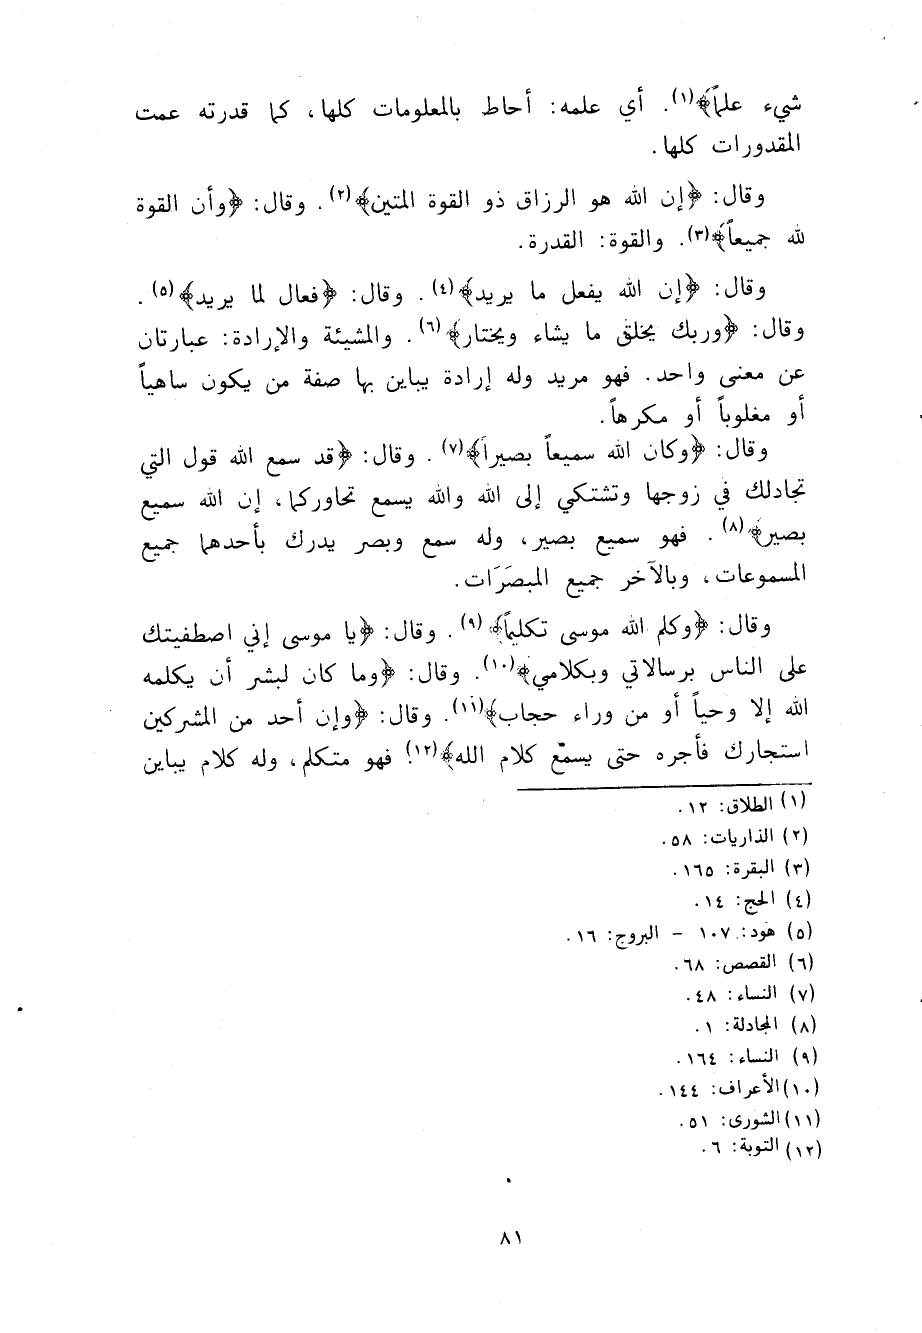 شيء علماً﴾(١). أي علمه: أحاط بالمعلومات كلها، كما قدرته عمت
المقدورات كلها.
وقال: ﴿إن الله هو الرزاق ذو القوة المتين﴾(٢). وقال: ﴿وأن القوة
لله جميعاً﴾(٣). والقوة: القدرة.
وقال: ﴿إن الله يفعل ما يريد﴾(٤). وقال: ﴿فعال لما يريد﴾(٥).
وقال: ﴿وربك يخلق ما يشاء ويختار﴾(٦). والمشيئة والإرادة: عبارتان
عن معنى واحد. فهو مريد وله إرادة يباين بها صفة من يكون ساهياً
أو مغلوباً أو مكرهاً.
وقال: ﴿وكان الله سميعاً بصيراً﴾(٧). وقال: ﴿قد سمع الله قول التي
تجادلك في زوجها وتشتكي إلى الله والله يسمع تحاوركما، إن الله سميع
بصير﴾(٨). فهو سميع بصير، وله سمع وبصر يدرك بأحدهما جميع
المسموعات، وبالآخر جميع المبصَرَات.
وقال: ﴿وكلم الله موسى تكليماً﴾(٩). وقال: ﴿يا موسى إني اصطفيتك
على الناس برسالاتي وبكلامي﴾(١٠). وقال: ﴿وما كان لبشر أن يكلمه
الله إلا وحياً أو من وراء حجاب﴾(١١). وقال: ﴿وإن أحد من المشركين
استجارك فأجره حتى يسمّع كلام الله﴾(١٢) فهو متكلم، وله كلام يباين
(١) الطلاق: ١٢.
(٢) الذاريات: ٥٨.
(٣) البقرة: ١٦٥.
(٤) الحج: ١٤.
(٥) هود: ١٠٧ - البروج: ١٦.
(٦) القصص: ٦٨.
(٧) النساء: ٤٨.
(٨) المجادلة: ١.
(٩) النساء: ١٦٤.
(١٠) الأعراف: ١٤٤.
(١١) الشورى: ٥١.
(١٢) التوبة: ٦.
٨١